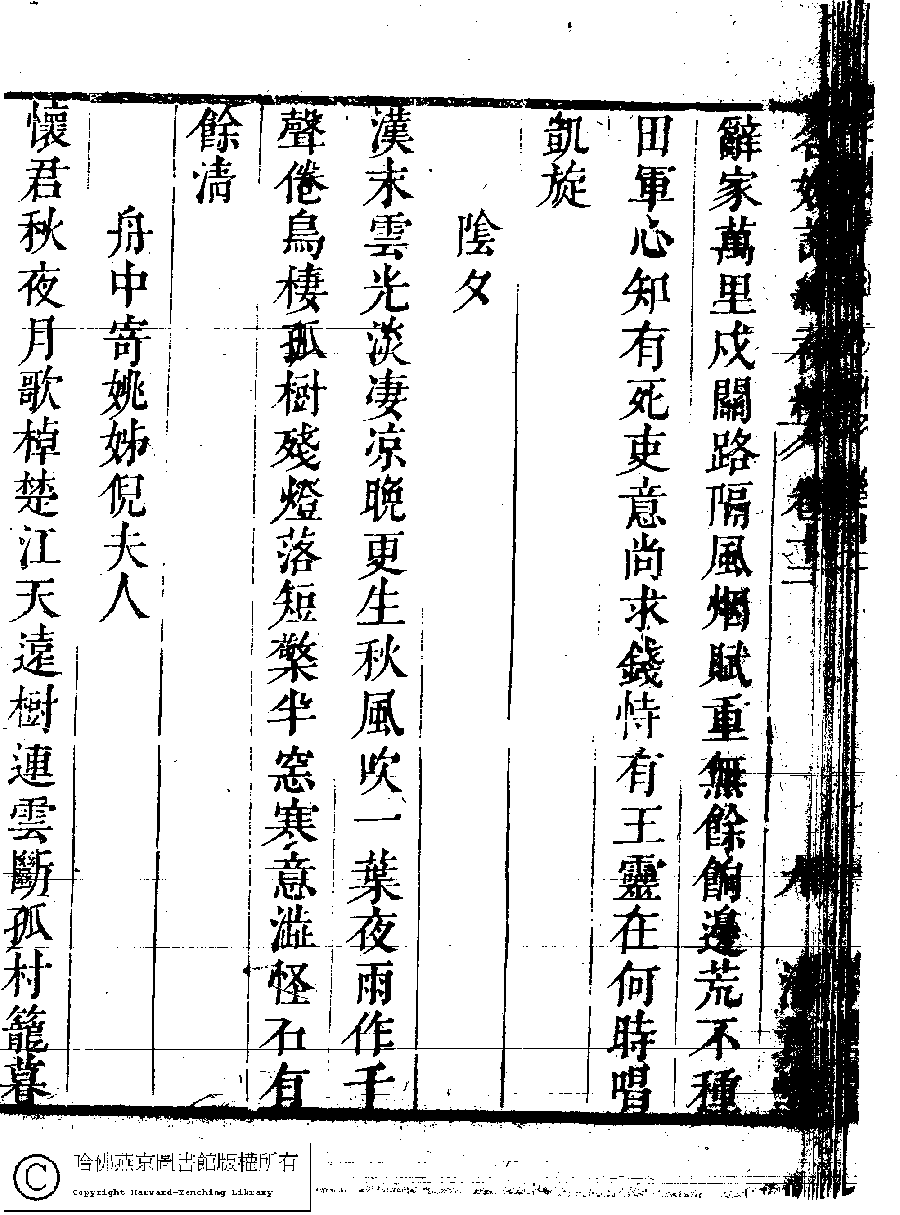 辭家萬里戍關路隔風烟賦重無餘餉邊荒不種
田軍心知有死吏意尚求錢恃有王靈在何時唱
凱旋
陰夕
漢末雲光淡凄凉晚更生秋風吹一葉夜雨作千
聲倦烏棲孤樹殘燈落短檠半窓寒意澁怪石有
餘清
舟中寄姚姊倪夫人
懷君秋夜月歌棹楚江天遠樹連雲斷孤村籠暮
哈佛燕京圖書館版權所有
Copyright Harvard-Yenching Library